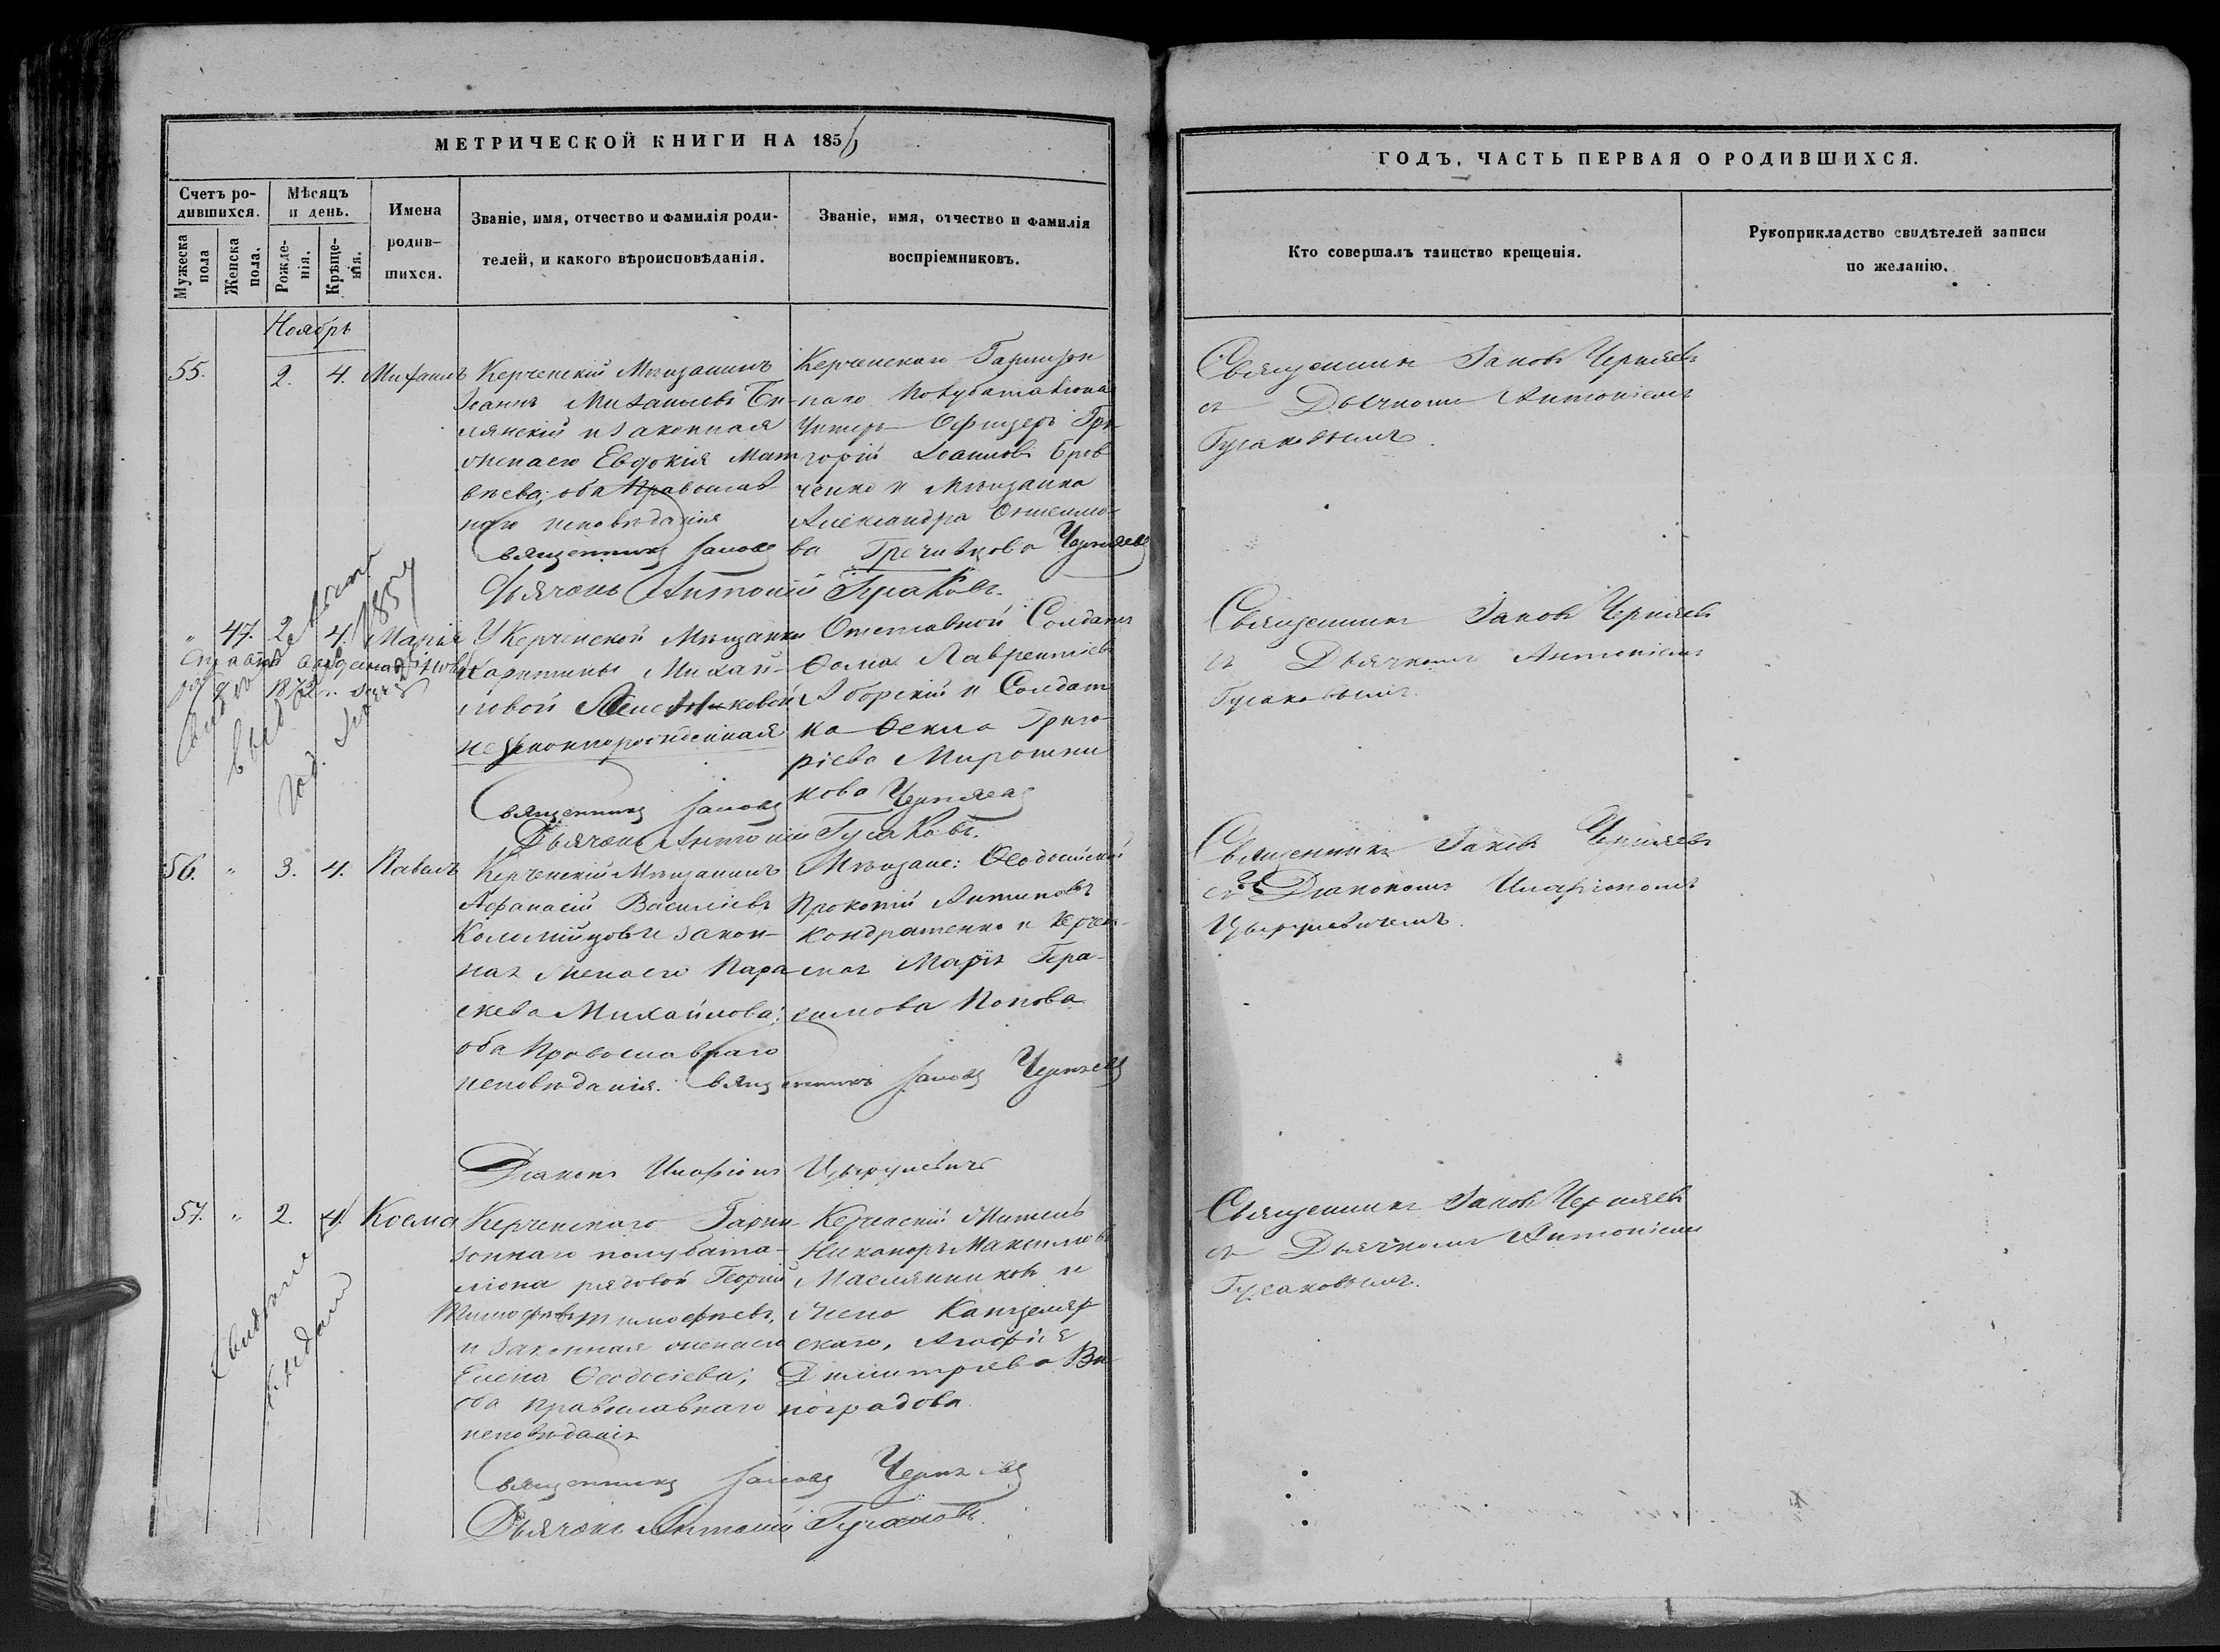 МЕТРИЧЕСКОЙ КНИГИ НА 185
Счетъ ро-
дившихся.
Мѣсяцъ
и день.
Мужеска
пола
Женска
пола.
Рожде-
нія.
Крѣще-
нія.
Имена
родив-
шихся.
Званіе, имя, отчество и фамилія роди-
телей, и какого вѣроисповѣданія.
Званіе, имя, отчество и фамилія
воспріемниковъ.
Ноябрь
55. 2. 4. Михаилъ
Керченскій Мѣщанинъ
Іоаннъ Михаиловъ
и законная
жена его Евдокія Мат
вѣева; оба Православ
наго исповѣданія
Священникъ Іаковъ Черняевъ
Дьячокъ Антоній Гусаковъ.
Керченскаго Гарнизон
наго Полубаталіона
Унтеръ-Офицеръ Гри
горій Іоанновъ
ченко и Мѣщанка
Александра
ва
" 47. 2. 4. Марія
У Керченской Мѣщанки
Харитины Михай-
ловой
незаконнорожденная
Священникъ Іаковъ Черняевъ
Дьячокъ Антоній Гусаковъ.
Отставной Солдатъ
Ѳома Лаврентіевъ
и Солдат
ка Ѳекла Григо-
ріева Мирошни
кова
56. " 3. 4. Павелъ
Керченскій Мѣщанинъ
Афанасій Василіевъ
и закон-
ная жена его Пара
скева Михайлова;
оба Православнаго
исповѣданія. Священникъ Іаковъ Черняевъ
Діаконъ Иларіонъ
Мѣщане: Ѳеодосійскій
Прокопій Антиповъ
Кондратенко и Керчен-
ская Марія Гера-
симова Попова
57. " 2. 4. Косма
Керченскаго Гарни
зоннаго полубата-
ліона рядовой Георгій
Тимофѣевъ Тимофѣевъ,
и законная жена его
Елена Ѳеодосіева;
оба православнаго
исповѣданія
Священникъ Іаковъ Черняевъ
Дьячокъ Антоній Гусаковъ.
Керченскій Житель
Никаноръ Максимовъ
Маслянниковъ и
жена Канцеляр
скаго, Агафія
Димитріева Ви
ноградова
ГОДЪ, ЧАСТЬ ПЕРВАЯ О РОДИВШИХСЯ.
Кто совершалъ таинство крещенія.
Рукоприкладство свидѣтелей записи
по желанію.
Священникъ Іаковъ Черняевъ
съ Дьячкомъ Антоніемъ
Гусаковымъ.
Священникъ Іаковъ Черняевъ
съ Дьячкомъ Антоніемъ
Гусаковымъ.
Священникъ Іаковъ Черняевъ
съ Діакономъ Иларіономъ
Священникъ Іаковъ Черняевъ
съ Дьячкомъ Антоніемъ
Гусаковымъ.